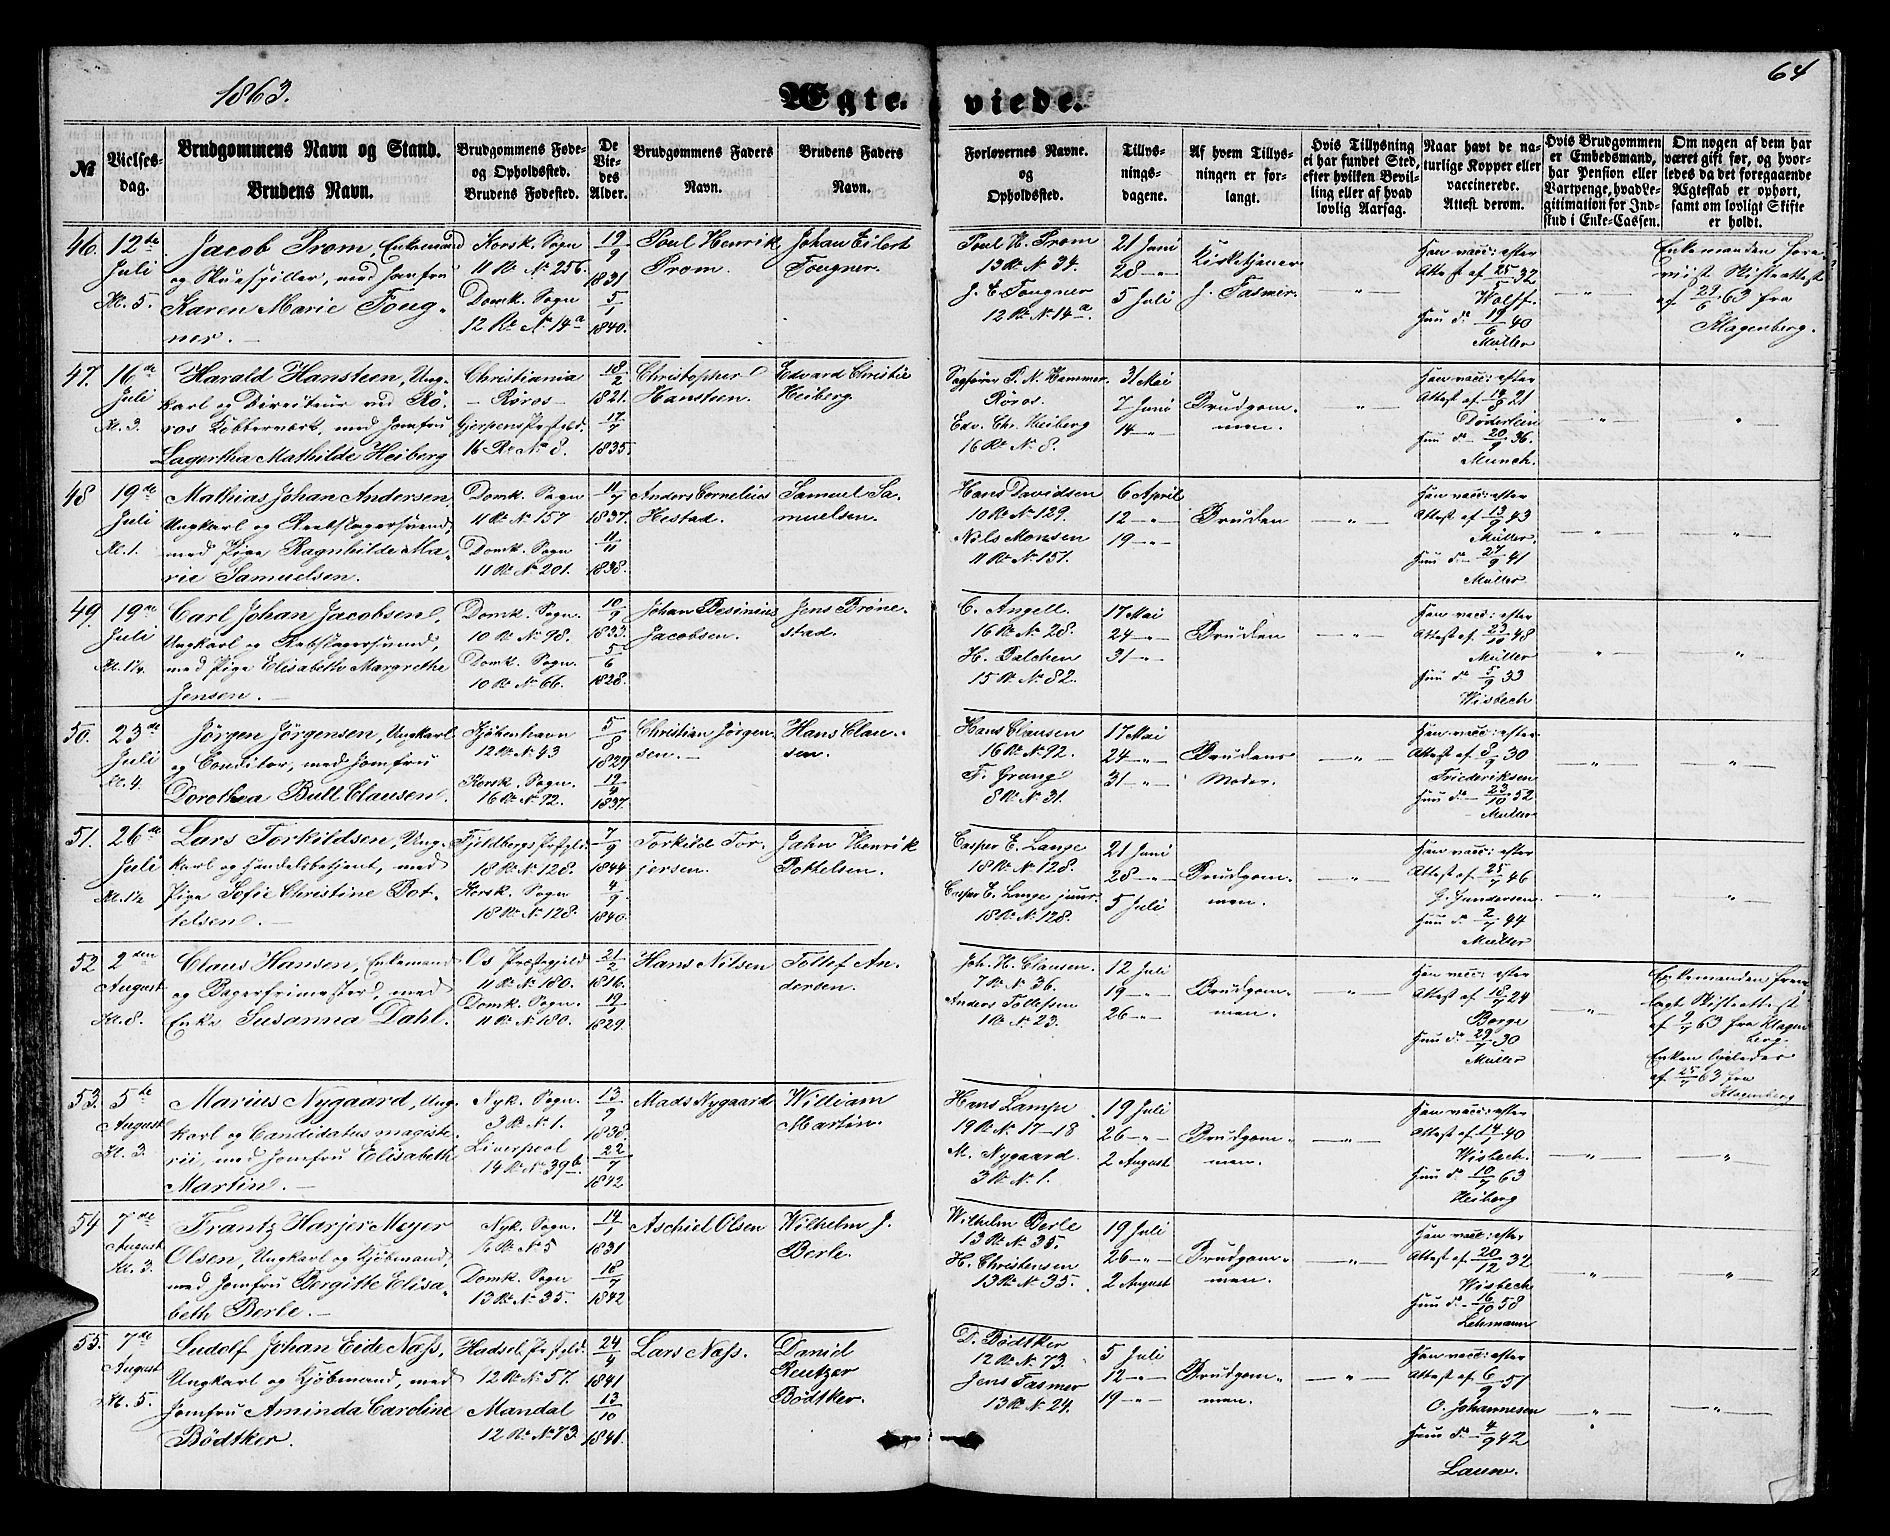 1863.
Ægte-
viede.
64
№
Vielses-
dag.
Brudgommens Navn og Stand.
Brudens Navn.
Brudgommens Føde-
og Opholdssted.
Brudens Fødested.
De
Vie-
des
Alder.
Brudgommens Faders
Navn.
Brudens Faders
Navn.
Forlovernes Navne.
og
Opholdssted.
Tillys-
nings-
dagene.
Af hvem Tillys-
ningen er for-
langt.
Hvis Tillysning
ei har fundet Sted,
efter hvilken Bevil-
ling eller af hvad
lovlig Aarsag.
Naar havt de na-
turlige Kopper eller
vaccinerede.
Attest derom.
Hvis Brudgommen
er Embedsmand,
har Pension eller
Vartpenge, hvad Le-
gitimation for Ind-
skud i Enke-Cassen.
Om nogen af dem har
været gift før, og hvor-
ledes da det foregaaende
Ægteskab er ophørt,
samt om lovligt Skifte
er holdt.
46. 12de Juli Kl. 5.
Jacob Prom, Enkemand
og Skuespiller, med Jomfru
Karen Marie Foug-
ner.
Korsk. Sogn
11 Rd. № 256.
Domk. Sogn
12 Rd. № 14a
19/9 1831
5/1 1840.
Poul Henrik
Prom.
Johan Eilert
Fougner.
Poul H. Prom
13 Rd. № 34.
J. E. Fougner
12 Rd. № 14a.
21 Juni
28 -"-
5 Juli
Kirketjener
J. Fasmer.
-"-
Han vacc: efter
Attest af 25/5 32
Wolff.
Hun do 19/6 40
Müller
-"-
Enkemanden fore-
viist Skifteattest
af 29/6 63 fra
Klagenberg.
47. 16de Juli Kl. 3.
Harald Hansteen, Ung-
karl og Directeur ved Rø-
ros Kobberværk, med Jomfru
Lagertha Mathilde Heiberg
Christiania
- Røros -
Gjerpens Præstegjd.
16 Rd. № 8.
18/2 1821.
17/7 1835.
Christopher
Hansteen.
Edvard Christie
Heiberg.
Sagfører P. N. Hammer.
Røros.
Edv. Chr. Heiberg
16 Rd. № 8.
31 Mai
7 Juni
14 -"-
Brudgom-
men.
-"-
Han vacc: efter
Attest af 14/8 21
Døderlein
Hun do 20/9 36.
Munch.
-"-
"
48 19de Juli Kl. 1.
Mathias Johan Andersen,
Ungkarl og Reebslagersvend,
med Pige Ragnhilde Ma-
rie Samuelsen.
Domk. Sogn
11 Rd. № 157
Domk. Sogn
11 Rd. № 201.
11/7 1837.
11/11 1838.
Anders Cornelius
Hestad.
Samuel Sa-
muelsen.
Hans Davidsen
10 Rd. № 129.
Nils Monsen
11 Rd. № 151.
6 April
12 -"-
19 -"-
Bruden
-"-
Han vacc: efter
Attest af 13/9 43
Müller.
Hun do 27/9 41
Müller
-"-
"
49. 19de Juli Kl. 1½.
Carl Johan Jacobsen,
Ungkarl og Rebslagersvend,
med Pige Elisabeth Margrethe
Jensen.
Domk. Sogn.
10 Rd. № 98.
Domk. Sogn.
10 Rd. № 66.
10/9 1833.
5/6 1828.
Johan Besinius
Jacobsen.
Jens Brøne-
stad.
C. Angell.
16 Rd. № 28.
H. Balchen
15 Rd. № 82.
17 Mai
24 -"-
31 -"-
Bruden
-"-
Han vacc: efter
Attest af 23/10 48
Müller
Hun do 5/9 33
Wisbech
"
"
50. 23de Juli Kl. 4.
Jørgen Jørgensen, Ungkarl
og Conditor, med Jomfru
Dorothea Bull Clausen.
Kjøbenhavn
12 Rd. № 43
Korsk. Sogn.
16 Rd. № 92.
5/8 1829
19/4 1837.
Christian Jørgen-
sen.
Hans Clau-
sen.
Hans Clausen
16 Rd. № 92.
F. Grung
8 Rd. № 31.
17 Mai
24 -"-
31 -"-
Brudens
Moder.
-"-
Han vacc: efter
Attest af 8/9 30
Friederiksen
Hun do 23/10 52
Müller
-"-
"
51. 26de Juli Kl. 1½
Lars Torkildsen, Ung-
karl og Handelsbetjent, med
Pige Sofie Christine Bot-
telsen.
Fjeldbergs Præstegjd.
18 Rd. № 128.
Korsk. Sogn
18 Rd. № 128.
7/9 1844
4/9 1840.
Torkild Tor-
jersen.
Jahn Henrik
Pottelsen.
Casper E. Lange
18 Rd. № 128.
Casper E. Lange junr.
18 Rd. № 128.
21 Juni
28 -"-
5 Juli
Brudgom-
men.
-"-
Han vacc: efter
Attest af 25/7 46
G. Gundersen.
Hun do 2/7 44
Müller
-"-
"
52 2den August Kl. 8.
Claus Hansen, Enkemand
og Bagerfrimester, med
Enke Susanna Dahl.
Os Præstegjeld
11 Rd. № 180.
Domk. Sogn.
11 Rd. № 180.
21/2 1816.
19/1 1829.
Hans Nilsen
Tollef An-
dersen.
Joh. H. Clausen.
7 Rd. № 36.
Anders Tollefsen
1 Rd. № 23.
12 Juli
19 -"-
26 -"-
Brudgom-
men.
-"-
Han vacc: efter
Attest af 18/7 24
Borge
Hun do 29/7 30
Müller
-"-
Enkemanden frem-
lagt Skifteattest
af 9/7 63 fra Klagen
berg.
Enken ligeledes
af 25/7 63 fra
Klagenberg
53. 5de August Kl. 3.
Marius Nygaard, Ung-
karl og Candidatus magiste-
rii, med Jomfru Elisabeth
Martin.
Nyk. Sogn.
3 Rd. № 1.
Liverpool
14 Rd. № 39b.
13/9 1838.
22/7 1842
Mads Nygaard
William
Martin.
Hans Lampe
19 Rd. № 17-18
M. Nygaard.
3 Rd. № 1.
19 Juli
26 -"-
2 August
Brudgom-
men.
-"-
Han vacc: efter
Attest af 14/7 40
Wisbech.
Hun do 10/7 63
Heiberg
-"-
"
54 7de August Kl. 3.
Frantz Harjer Meyer
Olsen, Ungkarl og Kjøbmand,
med Jomfru Bergitte Elisa-
beth Berle.
Nyk. Sogn.
6 Rd. № 5
Domk. Sogn
13 Rd. № 35.
14/1 1831
18/7 1842
Aschiel Olsen
Wilhelm J.
Berle.
Wilhelm Berle
13 Rd. № 35.
H. Christensen
13 Rd. № 35.
19 Juli
26 -"-
2 August
Brudgom-
men.
-"-
Han vacc: efter
Attest af 20/12 32
Wisbech
Hun do 16/10 58
Lehmann
"
"
55. 7de August Kl. 5.
Ludolf Johan Eide Nass,
Ungkarl og Kjøbmand, med
Jomfru Aminda Caroline
Bødtker.
Hadsel Præstegjd.
12 Rd. № 57.
Mandal
12 Rd. № 73
24/4 1841
13/10 1841.
Lars Nass.
Daniel
Reutzer
Bødtker.
D. Bødtker
12 Rd. № 73.
Jens Fasmer
13 Rd. № 24.
5 Juli
12 -"-
19 -"-
Brudgom-
men.
-"-
Han vacc: efter
Attest af 6/9 51
O. Johannesen
Hun do 4/9 42
Lauw.
-"-
-"-